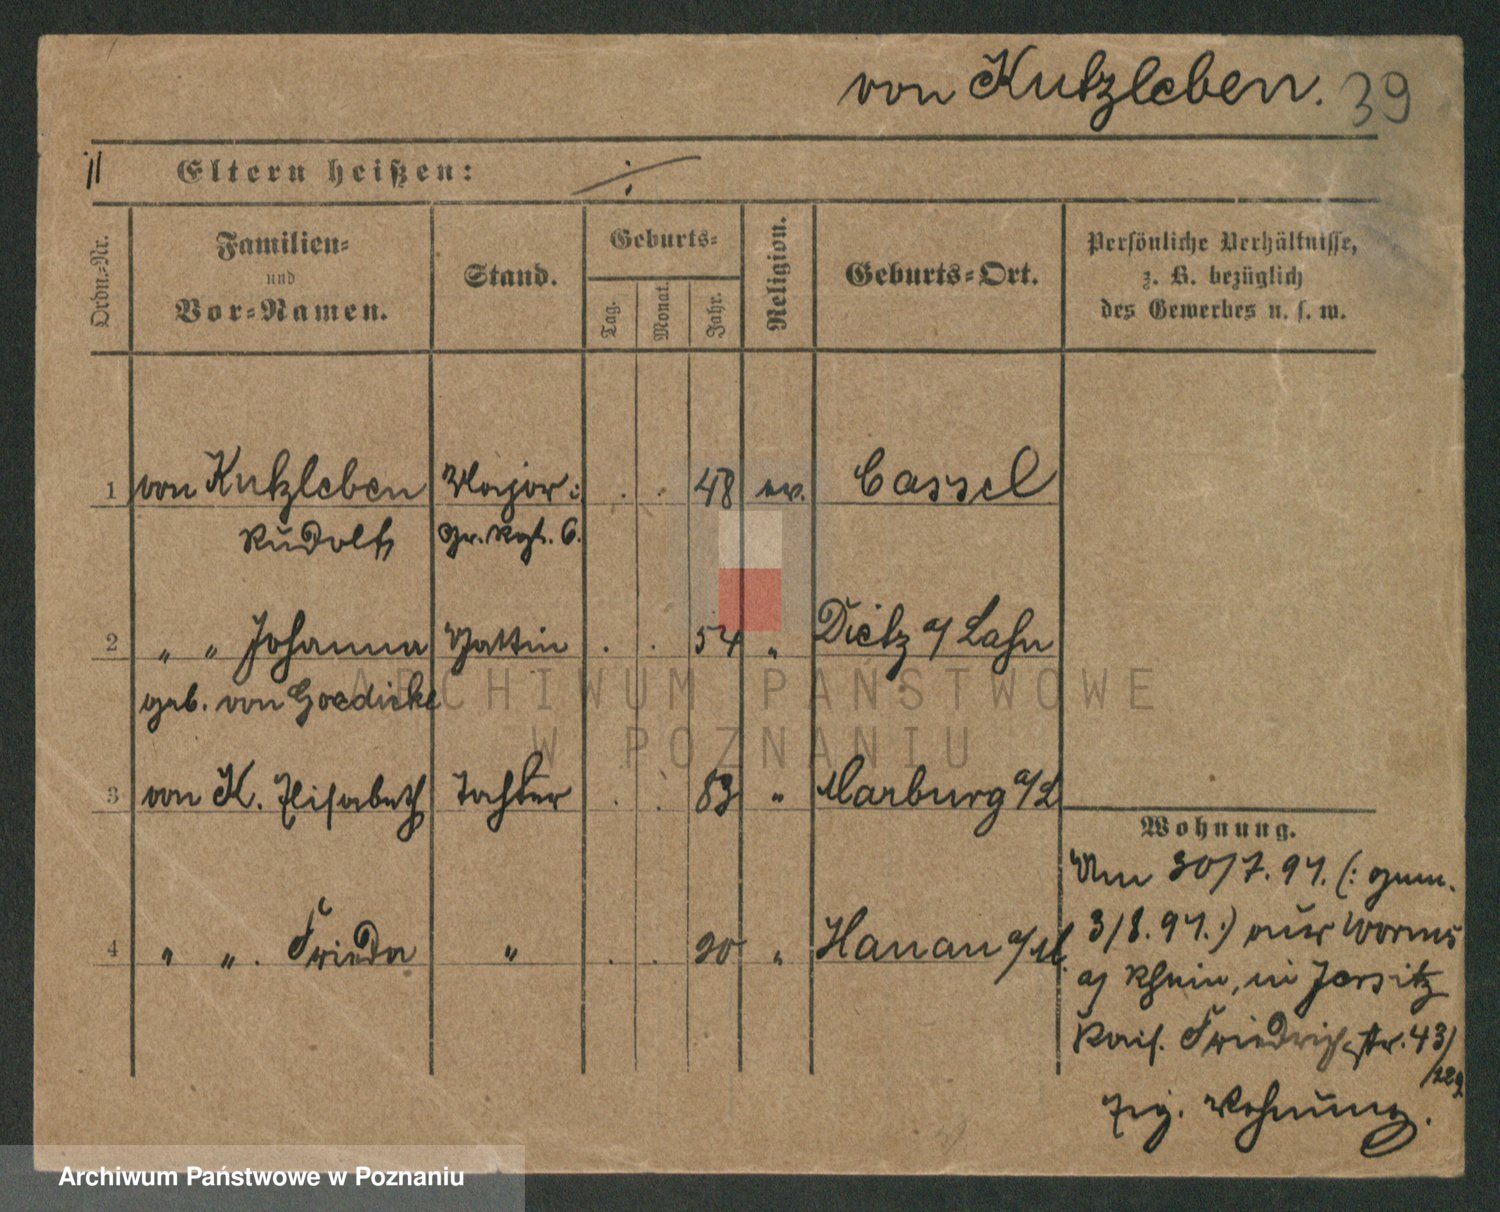 von Kutzleben. 39
Eltern heißen: ./.
Ordn.-Nr.
Familien-
und
Vor-Namen.
Stand.
Geburts-
Tag.
Monat.
Jahr.
Religion.
Geburts-Ort.
Persönliche Verhältnisse,
z. B. bezüglich
des Gewerbes u. s. w.
1 von Kutzleben Major i. . . 48 ev. Cassel
Rudolf Gr. Rgt. 6.
2 " " Johanna Gattin . . 54 " Dietz a/ Lahn
geb. von Goedicke
3 von K. Elisabeth Tochter . . 83 " Marburg a/L
4 " " . Frieda " . . 90 " Hanau a/M.
Wohnung.
Am 30/7. 97. (: gem.
3/8. 97. :) aus Worms
a/ Rhein, in Jersitz
Kais. Friedrichstr. 43/
Eig. Wohnung.
ARCHIWUM PAŃSTWOWE
W POZNANIU
Archiwum Państwowe w Poznaniu